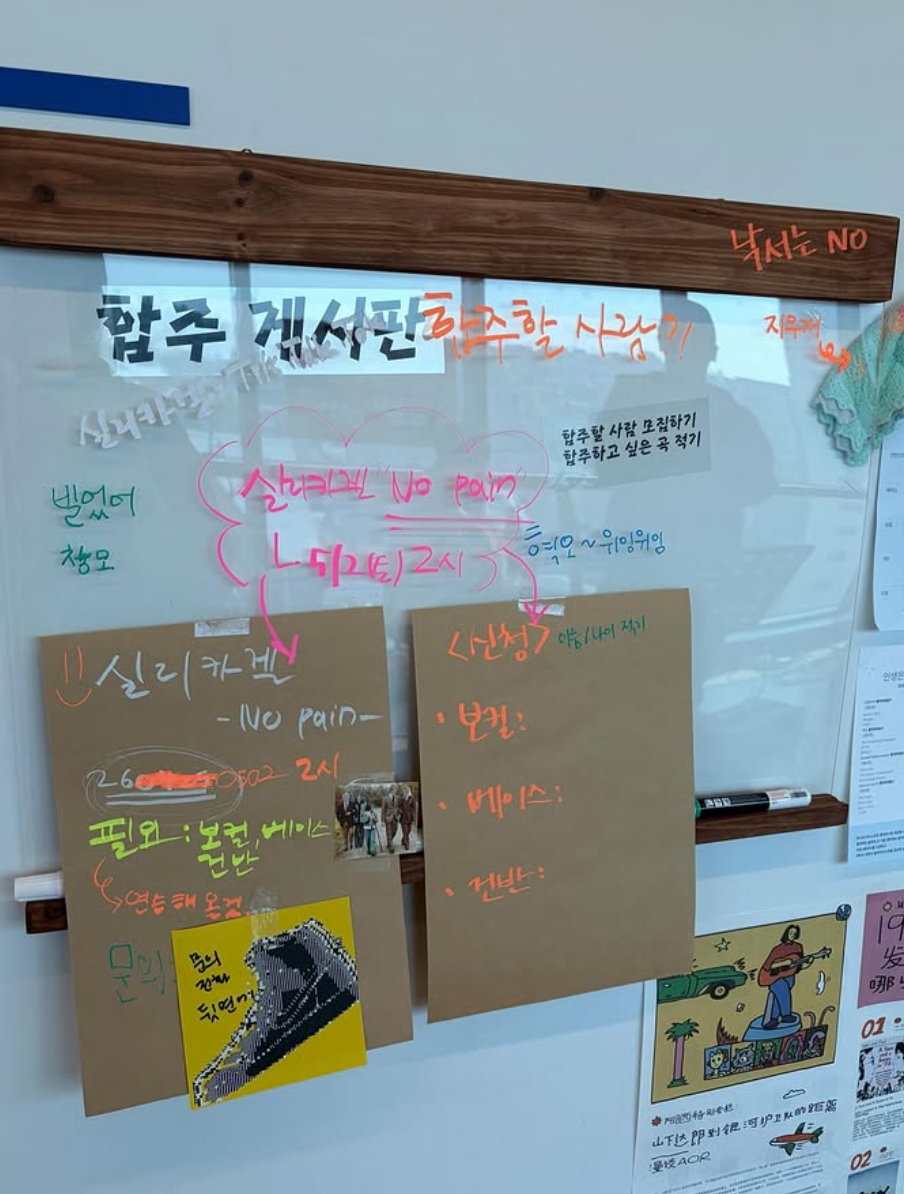 낙서는 NO
합주 게시판 합주할 사람??
지우개
실리카겔 - Tik Tak Tok
합주할 사람 모집하기
합주하고 싶은 곡 적기
실리카겔 "No pain"
5/2(토) 2시
빌었어
창모
혁오 ~ 위잉위잉
실리카겔
-No pain-
26 0502 2시
필요: 보컬, 베이스
건반
연습해 올것
문의
문의
뒷면에
<신청> 이름/나이 적기
· 보컬:
· 베이스:
· 건반:
인생은
山下达郎到银河护卫队的距离
漫谈AOR
19
发
哪
01
02